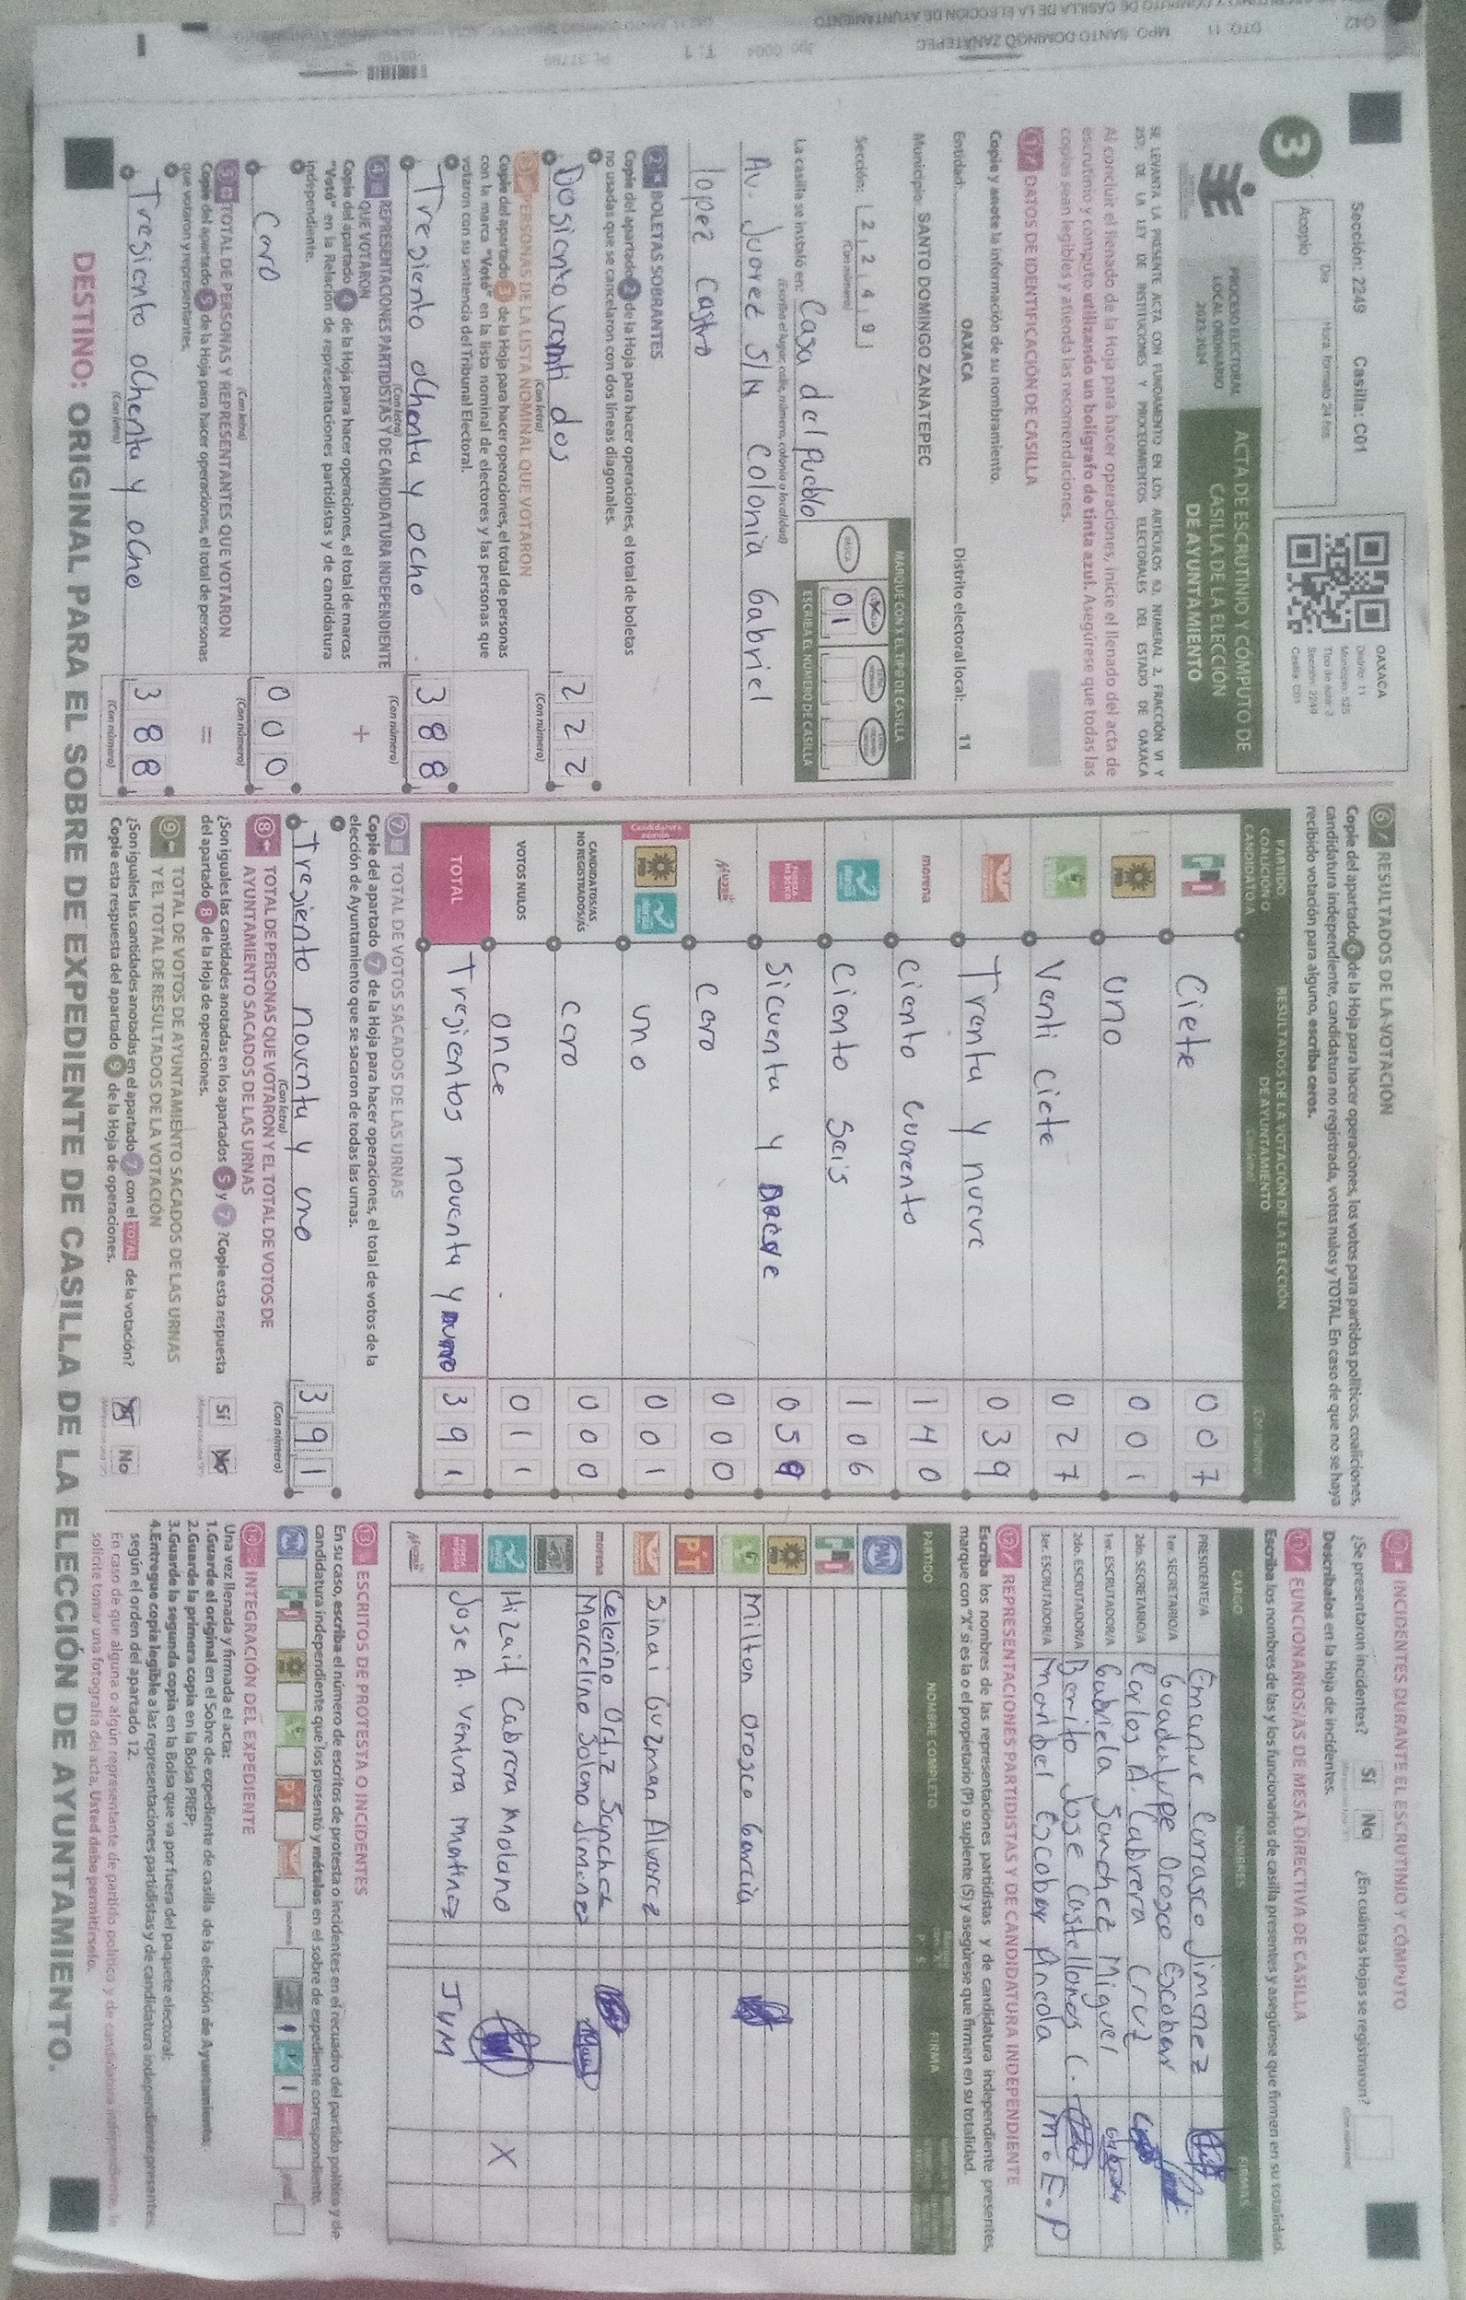 Sección: 2249 Casilla: C01
Día Hora: formato 24 hrs
Acopio
OAXACA
Distrito: 11
Municipio: 525
Sección: 2249
Casilla: C01
3
PROCESO ELECTORAL
LOCAL ORDINARIO
2023-2024
ACTA DE ESCRUTINIO Y CÓMPUTO DE
CASILLA DE LA ELECCIÓN
DE AYUNTAMIENTO
SE LEVANTA LA PRESENTE ACTA CON FUNDAMENTO EN LOS ARTÍCULOS 63, NUMERAL 2, FRACCIÓN VI Y
257, DE LA LEY DE INSTITUCIONES Y PROCEDIMIENTOS ELECTORALES DEL ESTADO DE OAXACA
Al concluir el llenado de la Hoja para hacer operaciones, inicie el llenado del acta de
escrutinio y cómputo utilizando un bolígrafo de tinta azul. Asegúrese que todas las
copias sean legibles y atienda las recomendaciones.
1 DATOS DE IDENTIFICACIÓN DE CASILLA
Copie y anote la información de su nombramiento.
Entidad: OAXACA Distrito electoral local: 11
Municipio: SANTO DOMINGO ZANATEPEC
MARQUE CON X EL TIPO DE CASILLA
Sección: 2 2 4 9
(Con número)
BÁSICA
0 1
ESCRIBA EL NÚMERO DE CASILLA
La casilla se instaló en: Casa del Pueblo
(Escriba el lugar, calle, número, colonia o localidad)
Av. Juarez S/N Colonia Gabriel
lopez Castro
2 BOLETAS SOBRANTES
Copie del apartado 2 de la Hoja para hacer operaciones, el total de boletas
no usadas que se cancelaron con dos líneas diagonales.
Dosiento vamti dos 2 2 2
(Con letra) (Con número)
3 PERSONAS DE LA LISTA NOMINAL QUE VOTARON
Copie del apartado 3 de la Hoja para hacer operaciones, el total de personas
con la marca "Votó" en la lista nominal de electores y las personas que
votaron con su sentencia del Tribunal Electoral.
Tresiento ochenta y ocho 3 8 8
(Con letra) (Con número)
4 REPRESENTACIONES PARTIDISTAS Y DE CANDIDATURA INDEPENDIENTE
QUE VOTARON
Copie del apartado 4 de la Hoja para hacer operaciones, el total de marcas
"Votó" en la Relación de representaciones partidistas y de candidatura
independiente.
+
Cero 0 0 0
(Con letra) (Con número)
5 TOTAL DE PERSONAS Y REPRESENTANTES QUE VOTARON
Copie del apartado 5 de la Hoja para hacer operaciones, el total de personas
que votaron y representantes.
=
Tresiento ochenta y ocho 3 8 8
(Con letra) (Con número)
6 RESULTADOS DE LA VOTACIÓN
Copie del apartado 6 de la Hoja para hacer operaciones, los votos para partidos políticos, coaliciones,
candidatura independiente, candidatura no registrada, votos nulos y TOTAL. En caso de que no se haya
recibido votación para alguno, escriba ceros.
PARTIDO
COALICIÓN O
CANDIDATO/A
RESULTADOS DE LA VOTACIÓN DE LA ELECCIÓN
DE AYUNTAMIENTO
(Con letra) (Con número)
PRI Ciete 0 0 7
PRD uno 0 0 1
Venti ciete 0 2 7
Trenta y nueve 0 3 9
morena Ciento cuarento 1 4 0
Ciento seis 1 0 6
FUERZA Sicuenta y 0 5 9
Mujer Cero 0 0 0
Candidatura común PRD uno 0 0 1
CANDIDATOS/AS
NO REGISTRADOS/AS Cero 0 0 0
VOTOS NULOS once 0 1 1
TOTAL Tresientos noventa y 3 9 1
7 TOTAL DE VOTOS SACADOS DE LAS URNAS
Copie del apartado 7 de la Hoja para hacer operaciones, el total de votos de la
elección de Ayuntamiento que se sacaron de todas las urnas.
Tresiento noventa y uno 3 9 1
(Con letra) (Con número)
8 TOTAL DE PERSONAS QUE VOTARON Y EL TOTAL DE VOTOS DE
AYUNTAMIENTO SACADOS DE LAS URNAS
¿Son iguales las cantidades anotadas en los apartados 5 y 7 ?Copie esta respuesta
del apartado 8 de la Hoja de operaciones.
Sí No
9 TOTAL DE VOTOS DE AYUNTAMIENTO SACADOS DE LAS URNAS
Y EL TOTAL DE RESULTADOS DE LA VOTACIÓN
¿Son iguales las cantidades anotadas en el apartado 7 con el TOTAL de la votación?
Copie esta respuesta del apartado 9 de la Hoja de operaciones.
Sí No
10 INCIDENTES DURANTE EL ESCRUTINIO Y CÓMPUTO
¿Se presentaron incidentes? Sí No ¿En cuántas Hojas se registraron?
Descríbalos en la Hoja de incidentes.
11 FUNCIONARIOS/AS DE MESA DIRECTIVA DE CASILLA
Escriba los nombres de las y los funcionarios de casilla presentes y asegúrese que firmen en su totalidad.
CARGO NOMBRES FIRMAS
PRESIDENTE/A Emanue Carrasco Jimenez
1er. SECRETARIO/A Guadalupe Orosco Escobar
2do. SECRETARIO/A Carlos A. Cabrera Cruz
1er. ESCRUTADOR/A Gabriela Sanchez Miguel
2do. ESCRUTADOR/A Benito Jose Castellanos C.
3er. ESCRUTADOR/A Maribel Escobar Ancola M.E.P
12 REPRESENTACIONES PARTIDISTAS Y DE CANDIDATURA INDEPENDIENTE
Escriba los nombres de las representaciones partidistas y de candidatura independiente presentes,
marque con "X" si es la o el propietario (P) o suplente (S) y asegúrese que firmen en su totalidad.
PARTIDO NOMBRE COMPLETO P S FIRMA
PAN
PRI
PRD
Milton Orosco Garcia
PT
Sinai Guzman Alvarez
morena Celerino Ortiz Sanchez
Marcelino Solano Jimenez
Hizait Cabrera Molano X
Jose A. Ventura Martinez JVM
13 ESCRITOS DE PROTESTA O INCIDENTES
En su caso, escriba el número de escritos de protesta o incidentes en el recuadro del partido político y de
candidatura independiente que los presentó y métalos en el sobre de expediente correspondiente.
14 INTEGRACIÓN DEL EXPEDIENTE
Una vez llenada y firmada el acta:
1.Guarde el original en el Sobre de expediente de casilla de la elección de Ayuntamiento;
2.Guarde la primera copia en la Bolsa PREP;
3.Guarde la segunda copia en la Bolsa que va por fuera del paquete electoral;
4.Entregue copia legible a las representaciones partidistas y de candidatura independiente presentes,
según el orden del apartado 12.
En caso de que alguna o algún representante de partido político y de candidatura independiente, le
solicite tomar una fotografía del acta, Usted debe permitírselo.
DESTINO: ORIGINAL PARA EL SOBRE DE EXPEDIENTE DE CASILLA DE LA ELECCIÓN DE AYUNTAMIENTO.